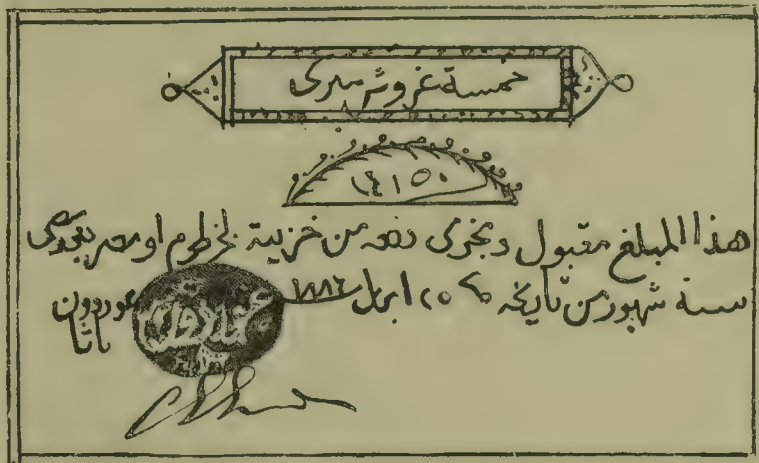 خمسة غروش ميرى
١٤١٥٠
هذا المبلغ مقبول ويجرى دفعه من خزينة الخرطوم او مصر بعد مضى
ستة شهور من تاريخه ٢٥ ابريل ١٨٨٤ غوردون
باشا